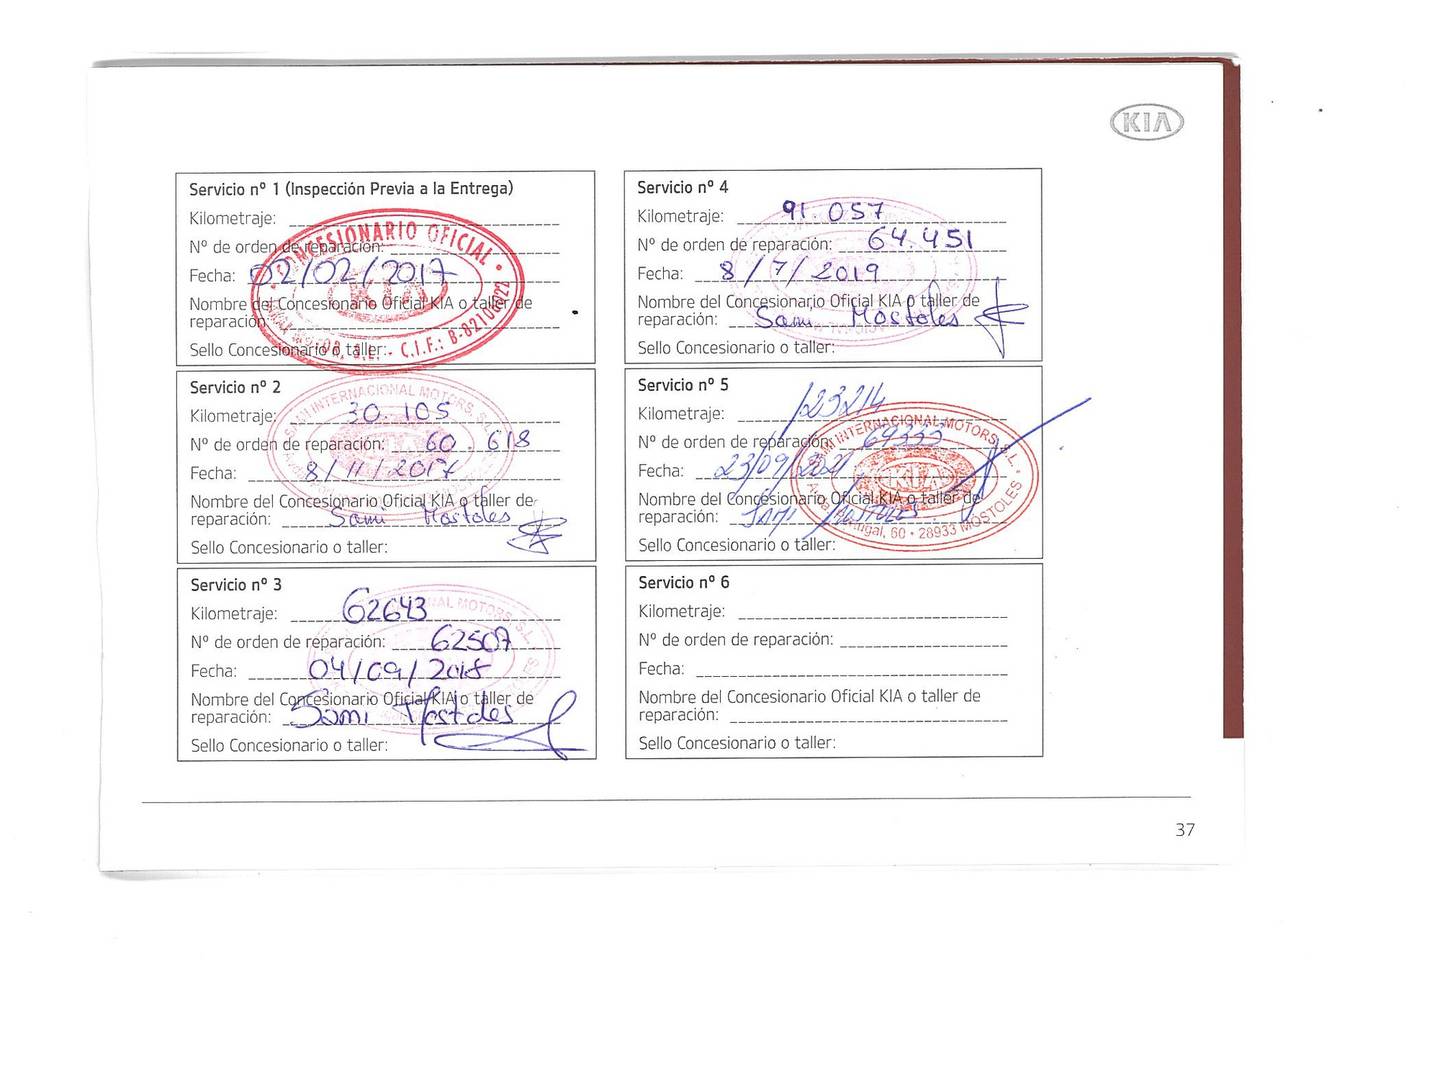 KIA
Servicio nº 1 (Inspección Previa a la Entrega)
Kilometraje:
Nº de orden de reparación:
Fecha: 02/02/2017
Nombre del Concesionario Oficial KIA o taller de
reparación:
Sello Concesionario o taller:
CONCESIONARIO OFICIAL
KIA
C.I.F.: B-82106022
Servicio nº 2
Kilometraje: 30.105
Nº de orden de reparación: 60.618
Fecha: 8/11/2017
Nombre del Concesionario Oficial KIA o taller de
reparación: Sami Mostoles
Sello Concesionario o taller:
INTERNACIONAL MOTORS, S.L.
Servicio nº 3
Kilometraje: 62643
Nº de orden de reparación: 62507
Fecha: 04/09/2018
Nombre del Concesionario Oficial KIA o taller de
reparación: Sami Mostoles
Sello Concesionario o taller:
MOTORS, S.L.
Servicio nº 4
Kilometraje: 91.057
Nº de orden de reparación: 64.451
Fecha: 8/7/2019
Nombre del Concesionario Oficial KIA o taller de
reparación: Sami Mostoles
Sello Concesionario o taller:
Servicio nº 5
Kilometraje: 123214
Nº de orden de reparación: 69333
Fecha: 23/09/2021
Nombre del Concesionario Oficial KIA o taller de
reparación: SAMI MOSTOLES
Sello Concesionario o taller:
INTERNACIONAL MOTORS, S.L.
KIA
Portugal, 60 - 28933 MOSTOLES
Servicio nº 6
Kilometraje:
Nº de orden de reparación:
Fecha:
Nombre del Concesionario Oficial KIA o taller de
reparación:
Sello Concesionario o taller:
37